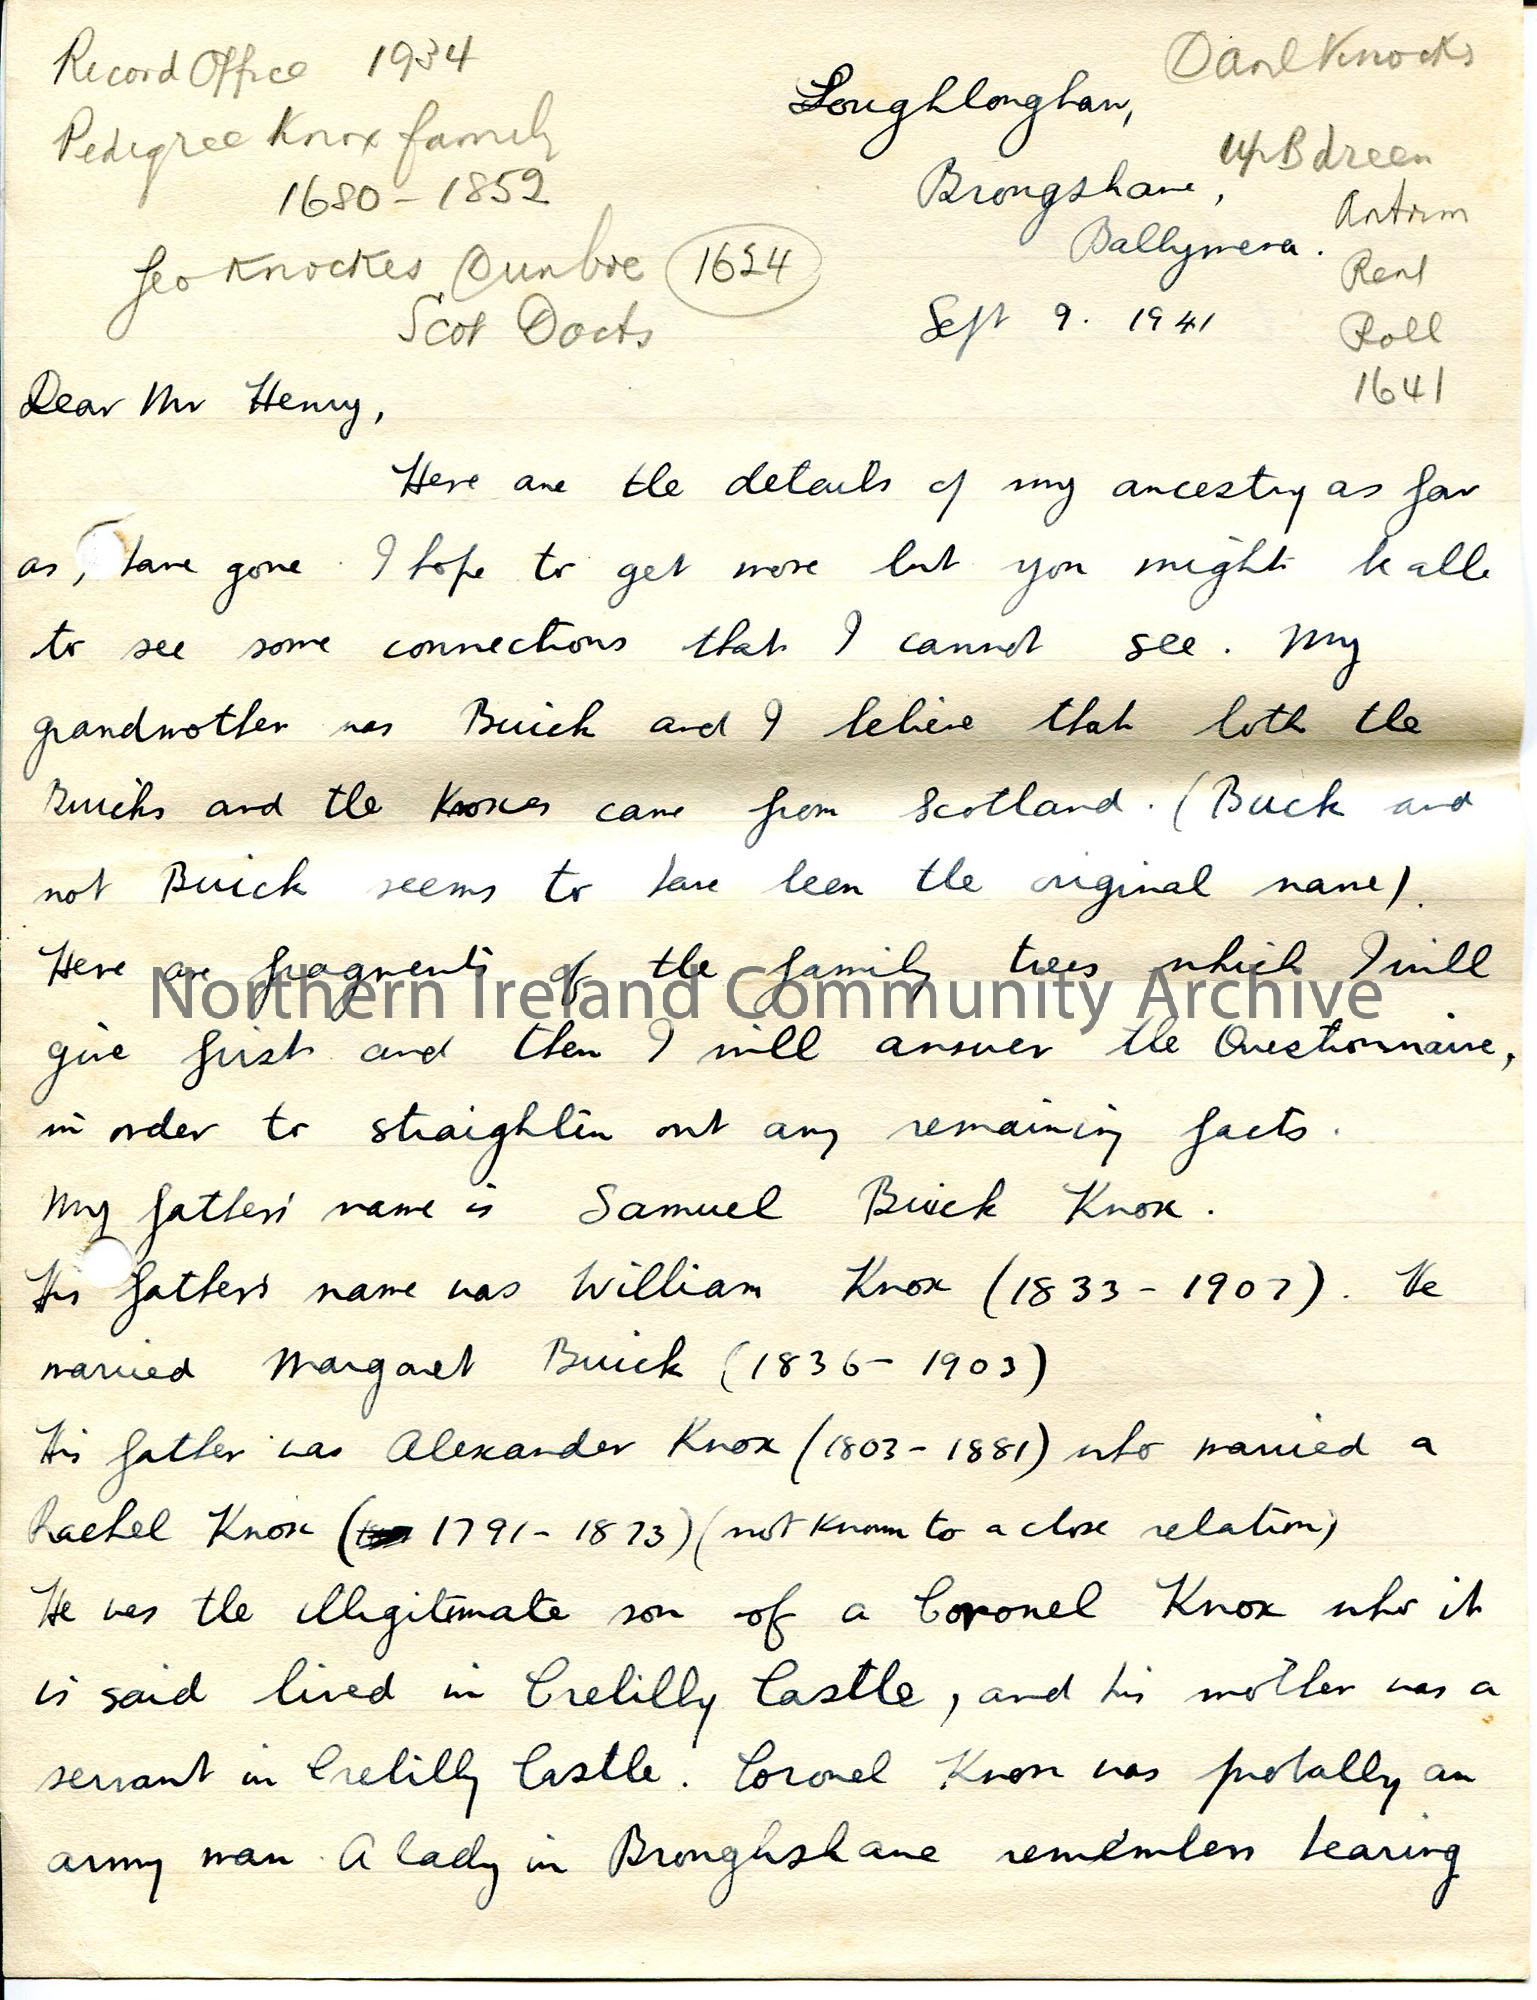 Record Office 1934
Pedigree Knox family
1680 - 1852
Geo Knockes Dunbre 1624
Scot Docts
Danl Knocks
Up B dreen
Antrim
Rent
Roll
1641
Loughlonghan,
Brougshane,
Ballymena.
Sept 9. 1941
Dear Mr Henry,
Here are the details of my ancestry as far
as I have gone. I hope to get more but you might be able
to see some connections that I cannot see. My
grandmother was Buick and I believe that both the
Buicks and the Knoxes came from Scotland. (Buck and
not Buick seems to have been the original name).
Here are fragments of the family trees which I will
give first and then I will answer the Questionnaire,
in order to straighten out any remaining facts.
My father's name is Samuel Buick Knox.
His father's name was William Knox (1833 - 1907). He
married Margaret Buick (1836 - 1903)
His father was Alexander Knox (1803 - 1881) who married a
Rachel Knox (1791 - 1873) (not known to a close relation)
He was the illegitimate son of a Coronel Knox who it
is said lived in Crebilly Castle, and his mother was a
servant in Crebilly Castle. Coronel Knox was probably an
army man. A lady in Broughshane remembers hearing
Northern Ireland Community Archive